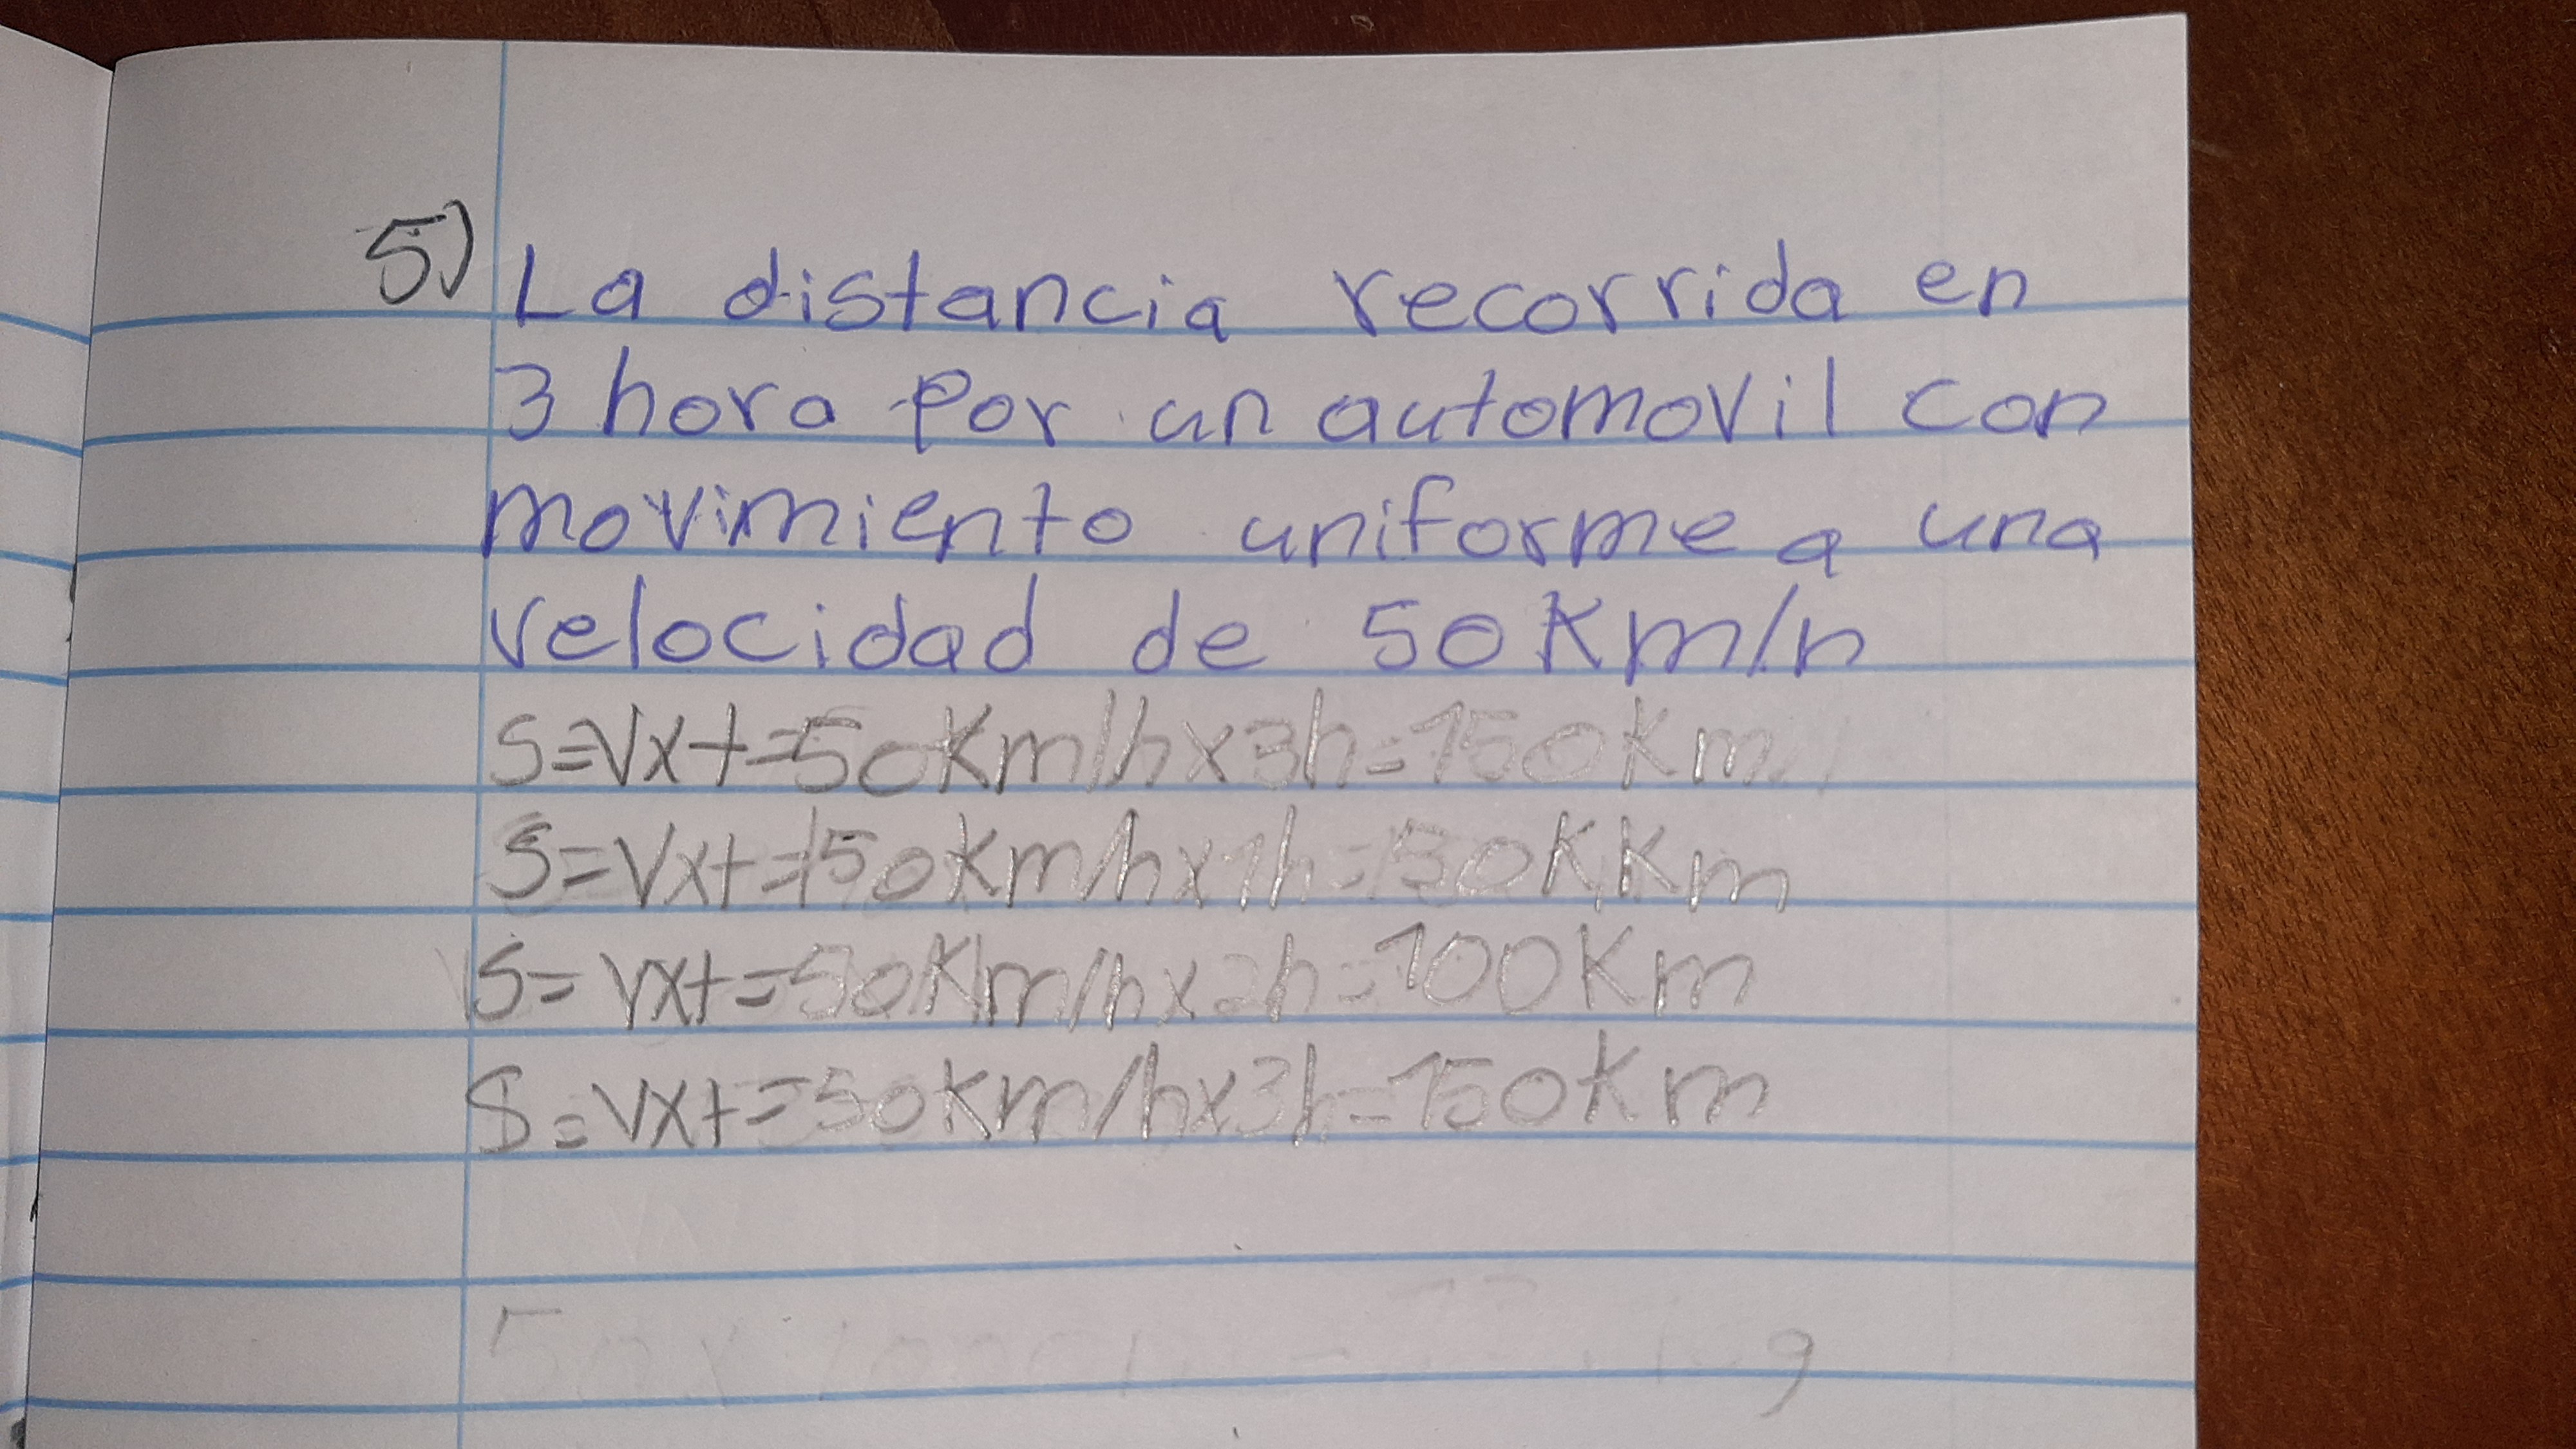 5) La distancia recorrida en
3 hora por un automovil con
movimiento uniforme a una
velocidad de 50Km/h
S=Vxt=50Km/hx3h=150Km
S=Vxt=50Km/hx1h=50KKm
S=Vxt=50Km/hx2h=100Km
S=Vxt=50Km/hx3h=150Km